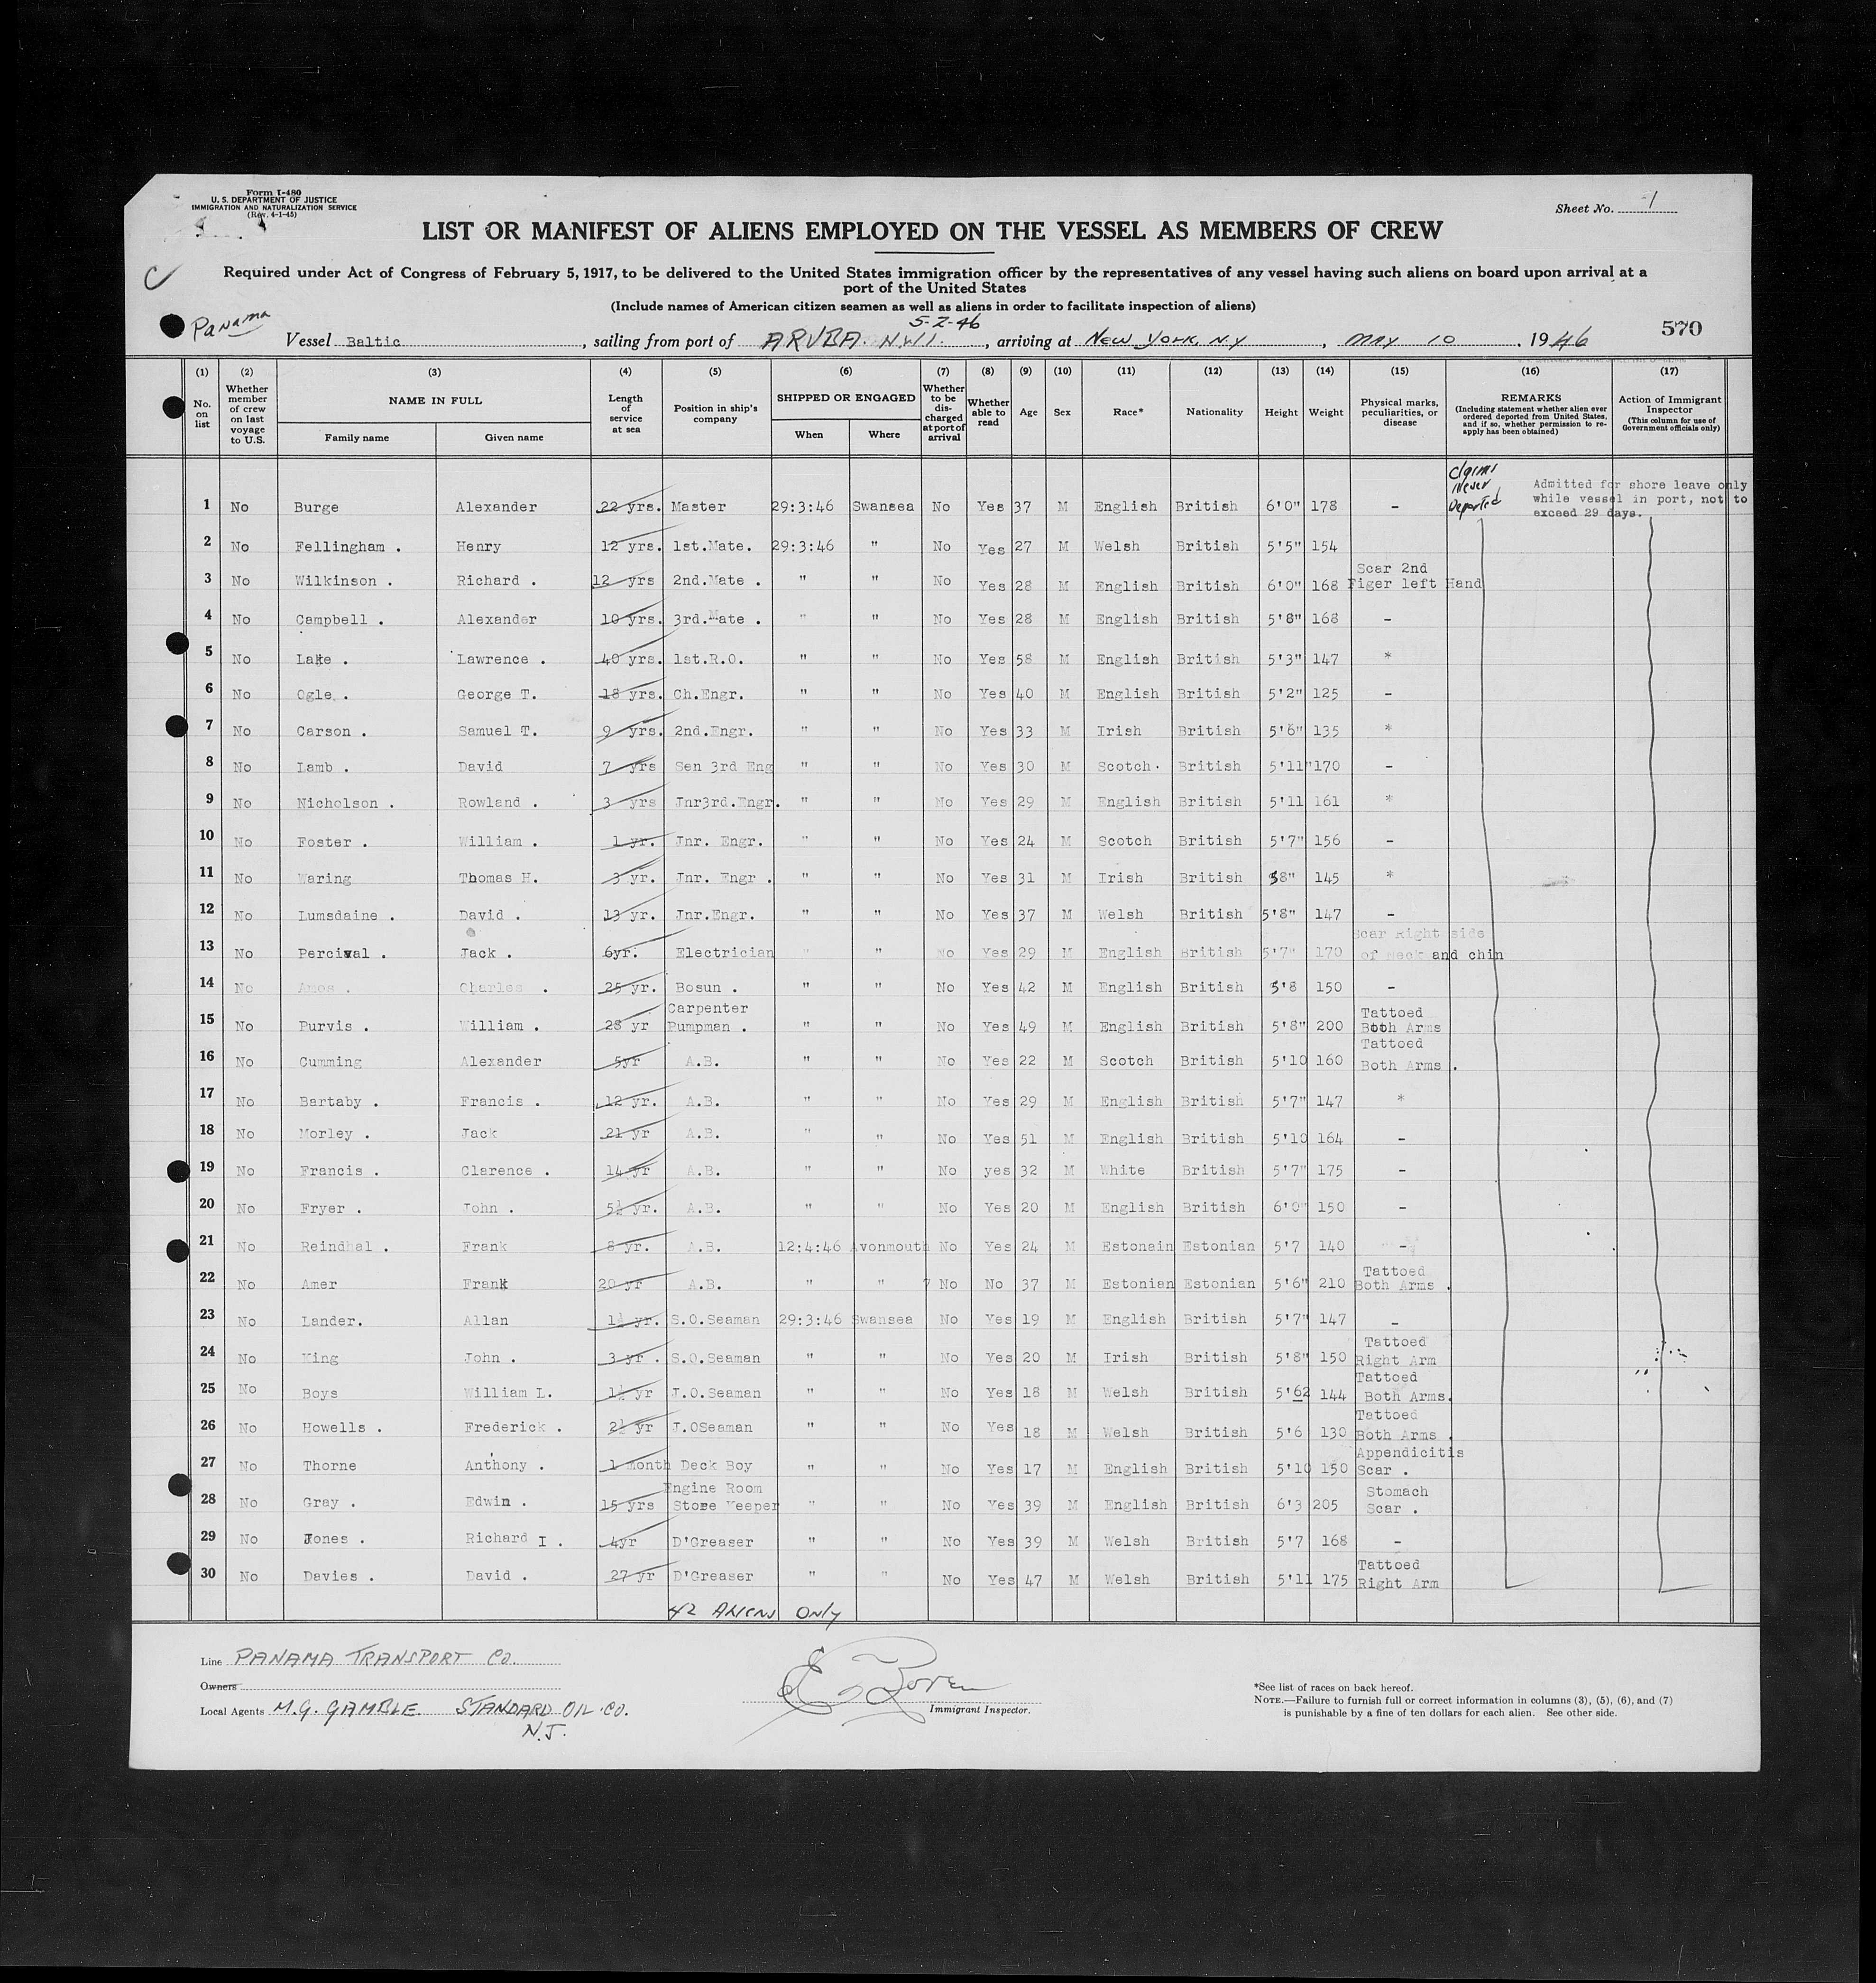 Form I-480
U. S. DEPARTMENT OF JUSTICE
IMMIGRATION AND NATURALIZATION SERVICE
(Rev. 4-1-45)
Sheet No. 1
LIST OR MANIFEST OF ALIENS EMPLOYED ON THE VESSEL AS MEMBERS OF CREW
Required under Act of Congress of February 5, 1917, to be delivered to the United States immigration officer by the representatives of any vessel having such aliens on board upon arrival at a
port of the United States
(Include names of American citizen seamen as well as aliens in order to facilitate inspection of aliens)
Panama
5-2-46
570
Vessel Baltic, sailing from port of ARUBA. N.W.I., arriving at NEW YORK, N.Y, MAY 10, 1946
(1) (2) (3) (4) (5) (6) (7) (8) (9) (10) (11) (12) (13) (14) (15) (16) (17)
No. on list
Whether member of crew on last voyage to U.S.
NAME IN FULL
Family name
Given name
Length of service at sea
Position in ship's company
SHIPPED OR ENGAGED
When
Where
Whether to be discharged at port of arrival
Whether able to read
Age
Sex
Race*
Nationality
Height
Weight
Physical marks, peculiarities, or disease
REMARKS
(Including statement whether alien ever ordered deported from United States, and if so, whether permission to reapply has been obtained)
Action of Immigrant Inspector
(This column for use of Government officials only)
Claims Never Deported
Admitted for shore leave only
while vessel in port, not to
exceed 29 days.
1 No Burge Alexander 22 yrs. Master 29:3:46 Swansea No Yes 37 M English British 6'0" 178 -
2 No Fellingham . Henry 12 yrs. 1st.Mate. 29:3:46 " No Yes 27 M Welsh British 5'5" 154
3 No Wilkinson . Richard . 12 yrs 2nd.Mate . " " No Yes 28 M English British 6'0" 168 Scar 2nd Figer left Hand
4 No Campbell . Alexander 10 yrs. 3rd.Mate . " " No Yes 28 M English British 5'8" 168 -
5 No Lake . Lawrence . 40 yrs. 1st.R.O. " " No Yes 58 M English British 5'3" 147 *
6 No Ogle . George T. 18 yrs. Ch.Engr. " " No Yes 40 M English British 5'2" 125 -
7 No Carson . Samuel T. 9 yrs. 2nd.Engr. " " No Yes 33 M Irish British 5'6" 135 *
8 No Lamb . David 7 yrs Sen 3rd Eng " " No Yes 30 M Scotch. British 5'11" 170 -
9 No Nicholson . Rowland . 3 yrs Jnr3rd.Engr. " " No Yes 29 M English British 5'11 161 *
10 No Foster . William . 1 yr. Jnr. Engr. " " No Yes 24 M Scotch British 5'7" 156 -
11 No Waring Thomas H. 3 yr. Jnr. Engr . " " No Yes 31 M Irish British 58" 145 *
12 No Lumsdaine . David . 13 yr. Jnr.Engr. " " No Yes 37 M Welsh British 5'8" 147 -
13 No Percival . Jack . 6yr. Electrician " " No Yes 29 M English British 5'7" 170 Scar Right side of neck and chin
14 No Amos . Charles . 25 yr. Bosun . " " No Yes 42 M English British 5'8 150 -
15 No Purvis . William . 28 yr Carpenter Pumpman . " " No Yes 49 M English British 5'8" 200 Tattoed Both Arms
16 No Cumming Alexander 5yr A.B. " " No Yes 22 M Scotch British 5'10 160 Tattoed Both Arms .
17 No Bartaby . Francis . 12 yr. A.B. " " No Yes 29 M English British 5'7" 147 *
18 No Morley . Jack 21 yr A.B. " " No Yes 51 M English British 5'10 164 -
19 No Francis . Clarence . 14 yr A.B. " " No yes 32 M White British 5'7" 175 -
20 No Fryer . John . 5½ yr. A.B. " " No Yes 20 M English British 6'0" 150 -
21 No Reindhal . Frank 8 yr. A.B. 12:4:46 Avonmouth No Yes 24 M Estonain Estonian 5'7 140 -
22 No Amer Frank 20 yr A.B. " " No No 37 M Estonian Estonian 5'6" 210 Tattoed Both Arms .
23 No Lander. Allan 1½ yr. S.O.Seaman 29:3:46 Swansea No Yes 19 M English British 5'7" 147 -
24 No King John . 3 yr . S.O.Seaman " " No Yes 20 M Irish British 5'8" 150 Tattoed Right Arm
25 No Boys William L. 1½ yr J.O.Seaman " " No Yes 18 M Welsh British 5'62 144 Tattoed Both Arms.
26 No Howells . Frederick . 2½ yr J.OSeaman " " No Yes 18 M Welsh British 5'6 130 Tattoed Both Arms .
27 No Thorne Anthony . 1 month Deck Boy " " No Yes 17 M English British 5'10 150 Appendicitis Scar .
28 No Gray . Edwin . 15 yrs Engine Room Store Keeper " " No Yes 39 M English British 6'3 205 Stomach Scar .
29 No Jones . Richard I . 4yr D'Greaser " " No Yes 39 M Welsh British 5'7 168 -
30 No Davies . David . 27 yr D'Greaser " " No Yes 47 M Welsh British 5'11 175 Tattoed Right Arm
42 Aliens Only
Line PANAMA TRANSPORT CO.
Owners
Local Agents M.G. GAMBLE STANDARD OIL CO.
N.J.
Immigrant Inspector.
*See list of races on back hereof.
NOTE.—Failure to furnish full or correct information in columns (3), (5), (6), and (7)
is punishable by a fine of ten dollars for each alien. See other side.